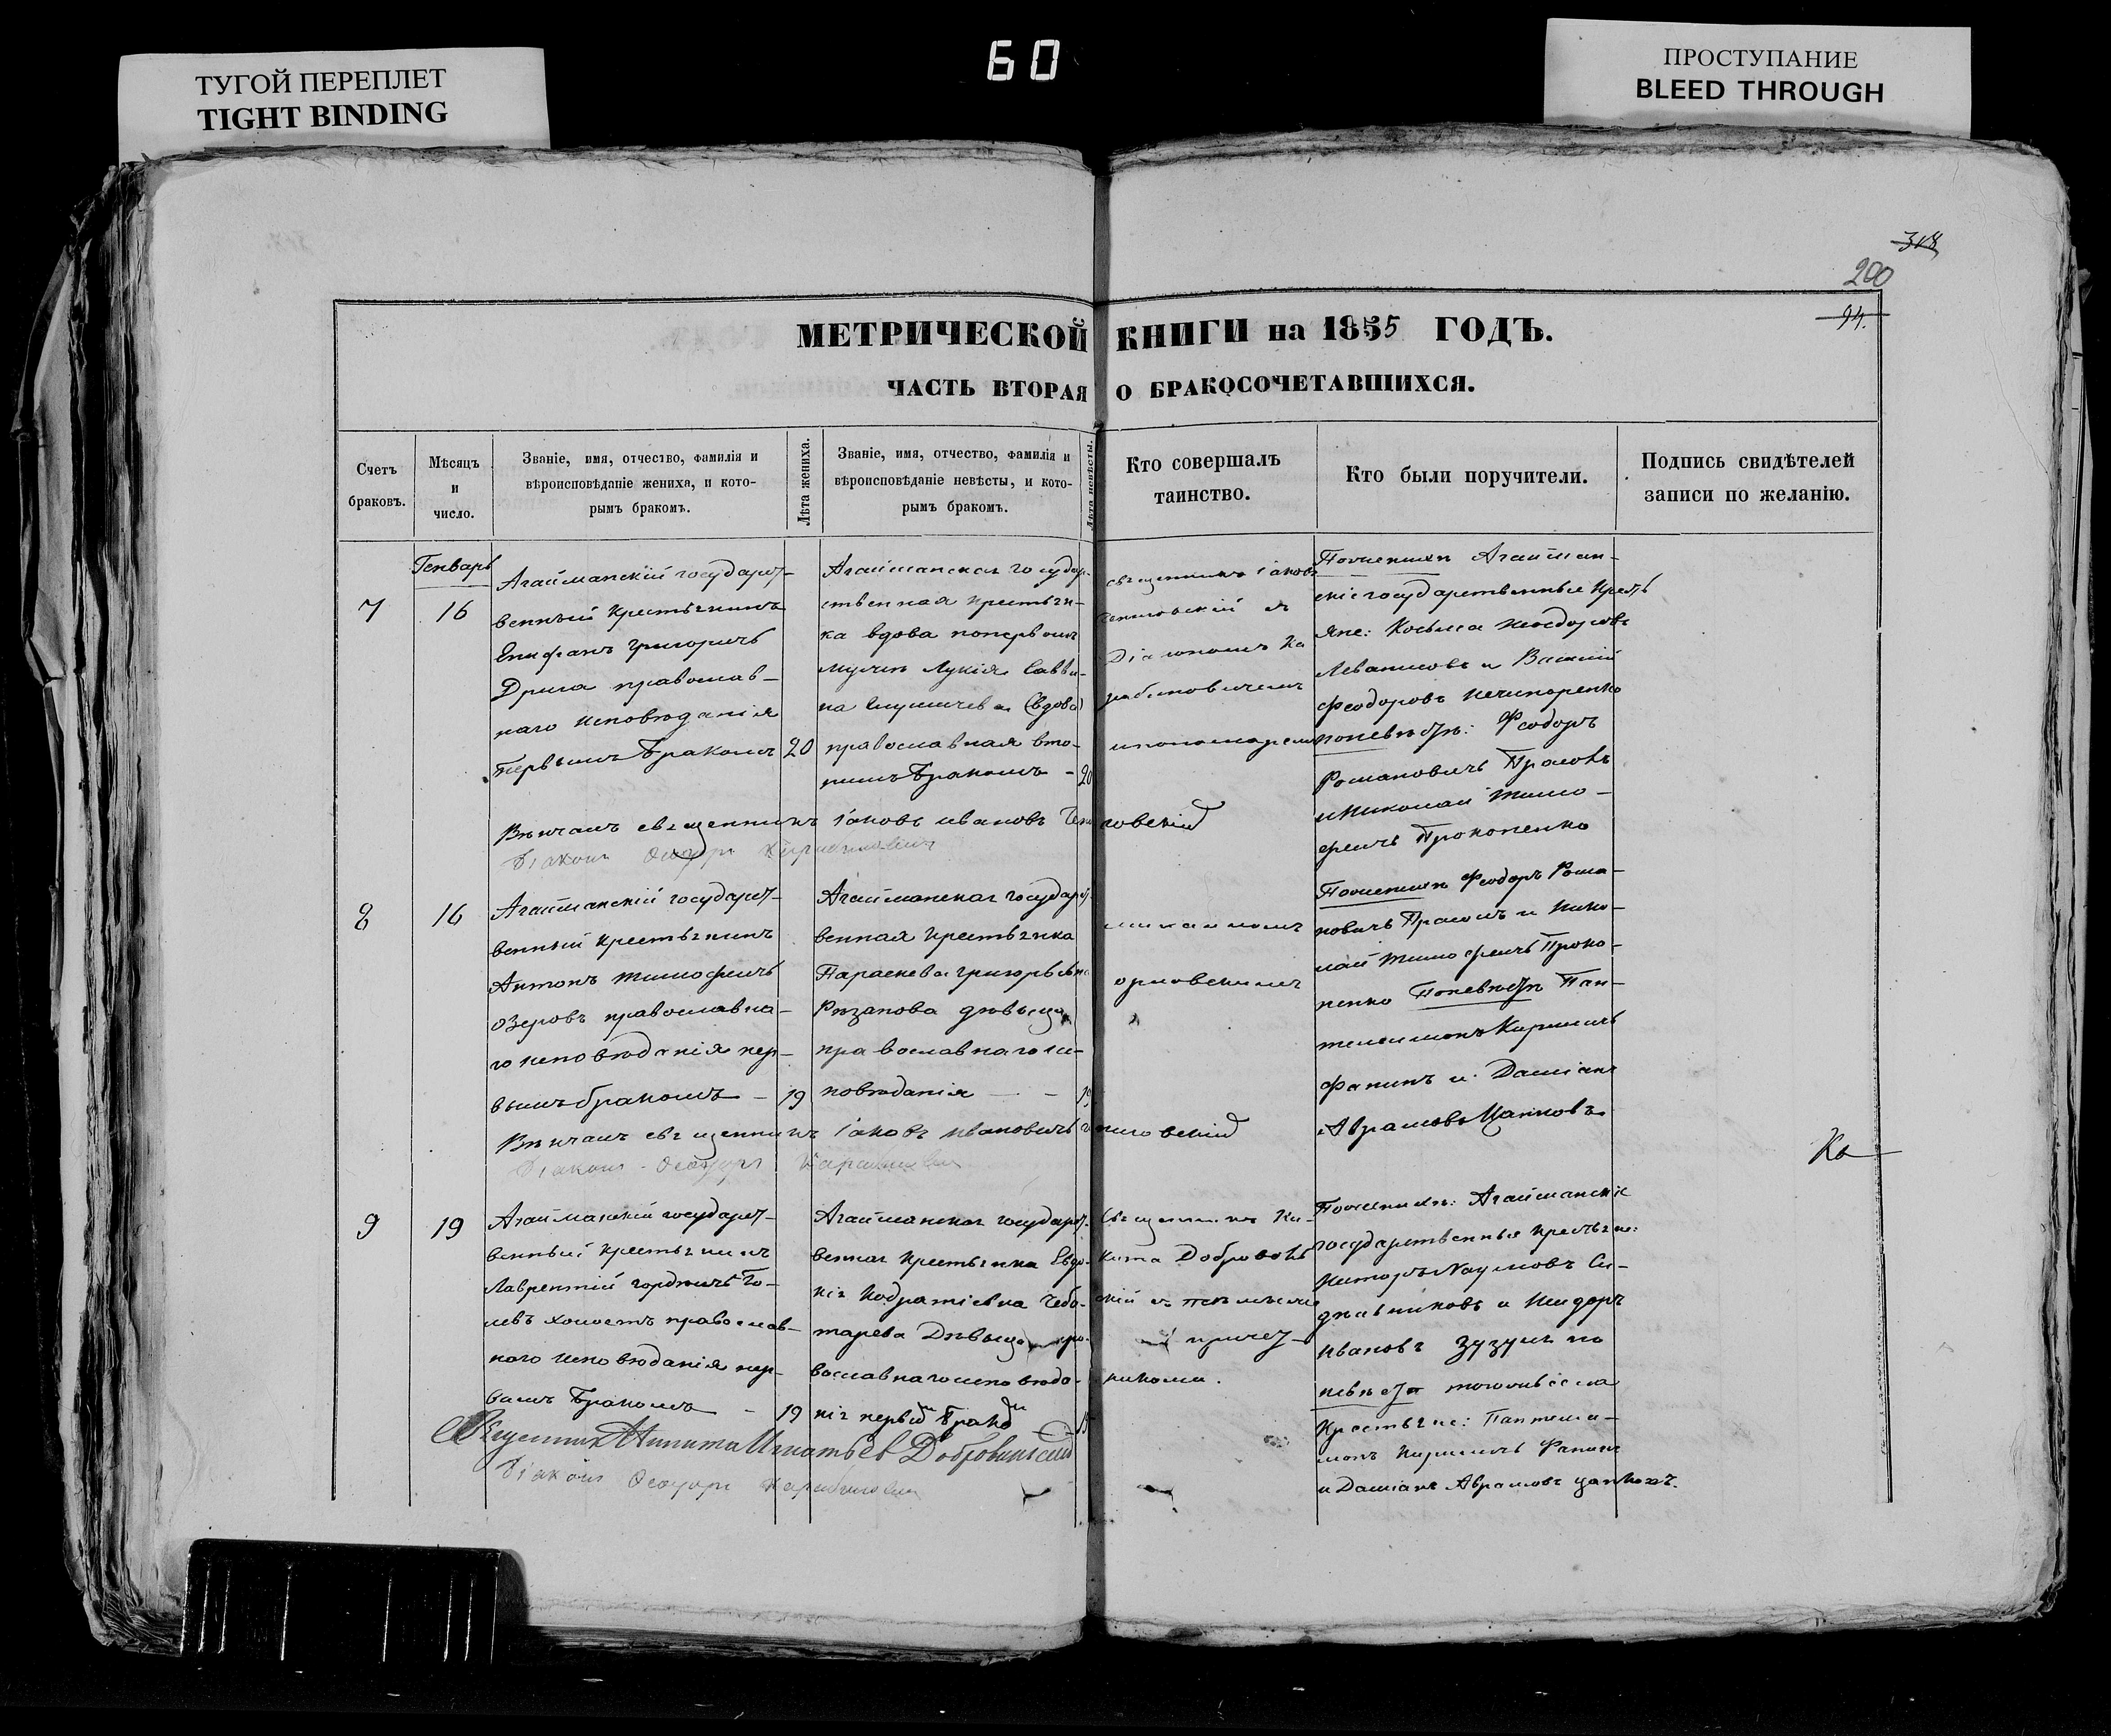 ТУГОЙ ПЕРЕПЛЕТ
TIGHT BINDING
60
ПРОСТУПАНИЕ
BLEED THROUGH
200
94.
МЕТРИЧЕСКОЙ КНИГИ на 1855 ГОДЪ.
ЧАСТЬ ВТОРАЯ О БРАКОСОЧЕТАВШИХСЯ.
Счетъ браковъ.
Мѣсяцъ и число.
Званіе, имя, отчество, фамилія и
вѣроисповѣданіе жениха, и кото-
рымъ бракомъ.
Лѣта жениха.
Званіе, имя, отчество, фамилія и
вѣроисповѣданіе невѣсты, и кото-
рымъ бракомъ.
Лѣта невѣсты.
Кто совершалъ
таинство.
Кто были поручители.
Подпись свидѣтелей
записи по желанію.
Генварь
7
16
Агайманскій государст-
венный крестьянинъ
Епифанъ Григорьевъ
Дрига православ-
наго исповѣданія
первымъ бракомъ
20
Агайманская государ-
ственная крестьян-
ка вдова попервомъ
мужѣ Лукія Савви-
на (вдова)
православная вто-
рымъ бракомъ -
20
священникъ Іаковъ
діакономъ Ка
рабиновичемъ
и пономаремъ
Поженихѣ Агайман-
скіе государственные крестья
яне: Козьма
и Василій
Феодоровъ Нечипоренко
поневѣстѣ: Феодоръ
Романовичъ
и Николай Тимо-
феичъ Прокопенко
Вѣнчалъ священникъ Іаковъ Ивановъ
Діаконъ Ѳеодоръ Карабиновичъ
8
16
Агайманскій государст-
венный крестьянинъ
Антонъ Тимофеичъ
Озеровъ православна-
го исповѣданія пер-
вымъ бракомъ -
19
Агайманская государст-
венная крестьянка
Параскева Григорьевна
Рязанова дѣвица
православнаго ис-
повѣданія - -
19
Поженихѣ Феодоръ Рома-
новичъ и Нико-
лай Тимофеичъ Проко-
пенко Поневѣстѣ Пан-
телеимонъ Кириличъ
Фанинъ и Даміанъ
Аврамовъ Цапковъ
Вѣнчалъ священникъ Іаковъ Ивановичъ
Діаконъ Ѳеодоръ Карабиновичъ
Ка
9
19
Агайманскій государст-
венный крестьянинъ
Лаврентій Гордѣичъ Го-
левъ холостъ православ-
наго исповѣданія пер-
вымъ бракомъ -
19
Агайманская государст-
венная крестьянка Евдо-
кія Кодратіевна Чебо-
тарева Дѣвица пра-
вославнаго исповѣда-
нія первымъ бракомъ
19
Священникъ Ни-
кита Добровол
скій съ
причет-
никами.
Поженихѣ: Агайманскіе
государственные крестьяне:
Наумовъ Си-
дельниковъ и Исидоръ
Ивановъ Зузукъ по
невѣстѣ тогожъ села
Крестьяне: Пантелеи-
монъ Кириличъ Фанинъ
и Даміанъ Аврамовъ Цапковъ.
Священникъ Никита Игнатьевъ Добровольскій
Діаконъ Ѳеодоръ Карабиновичъ